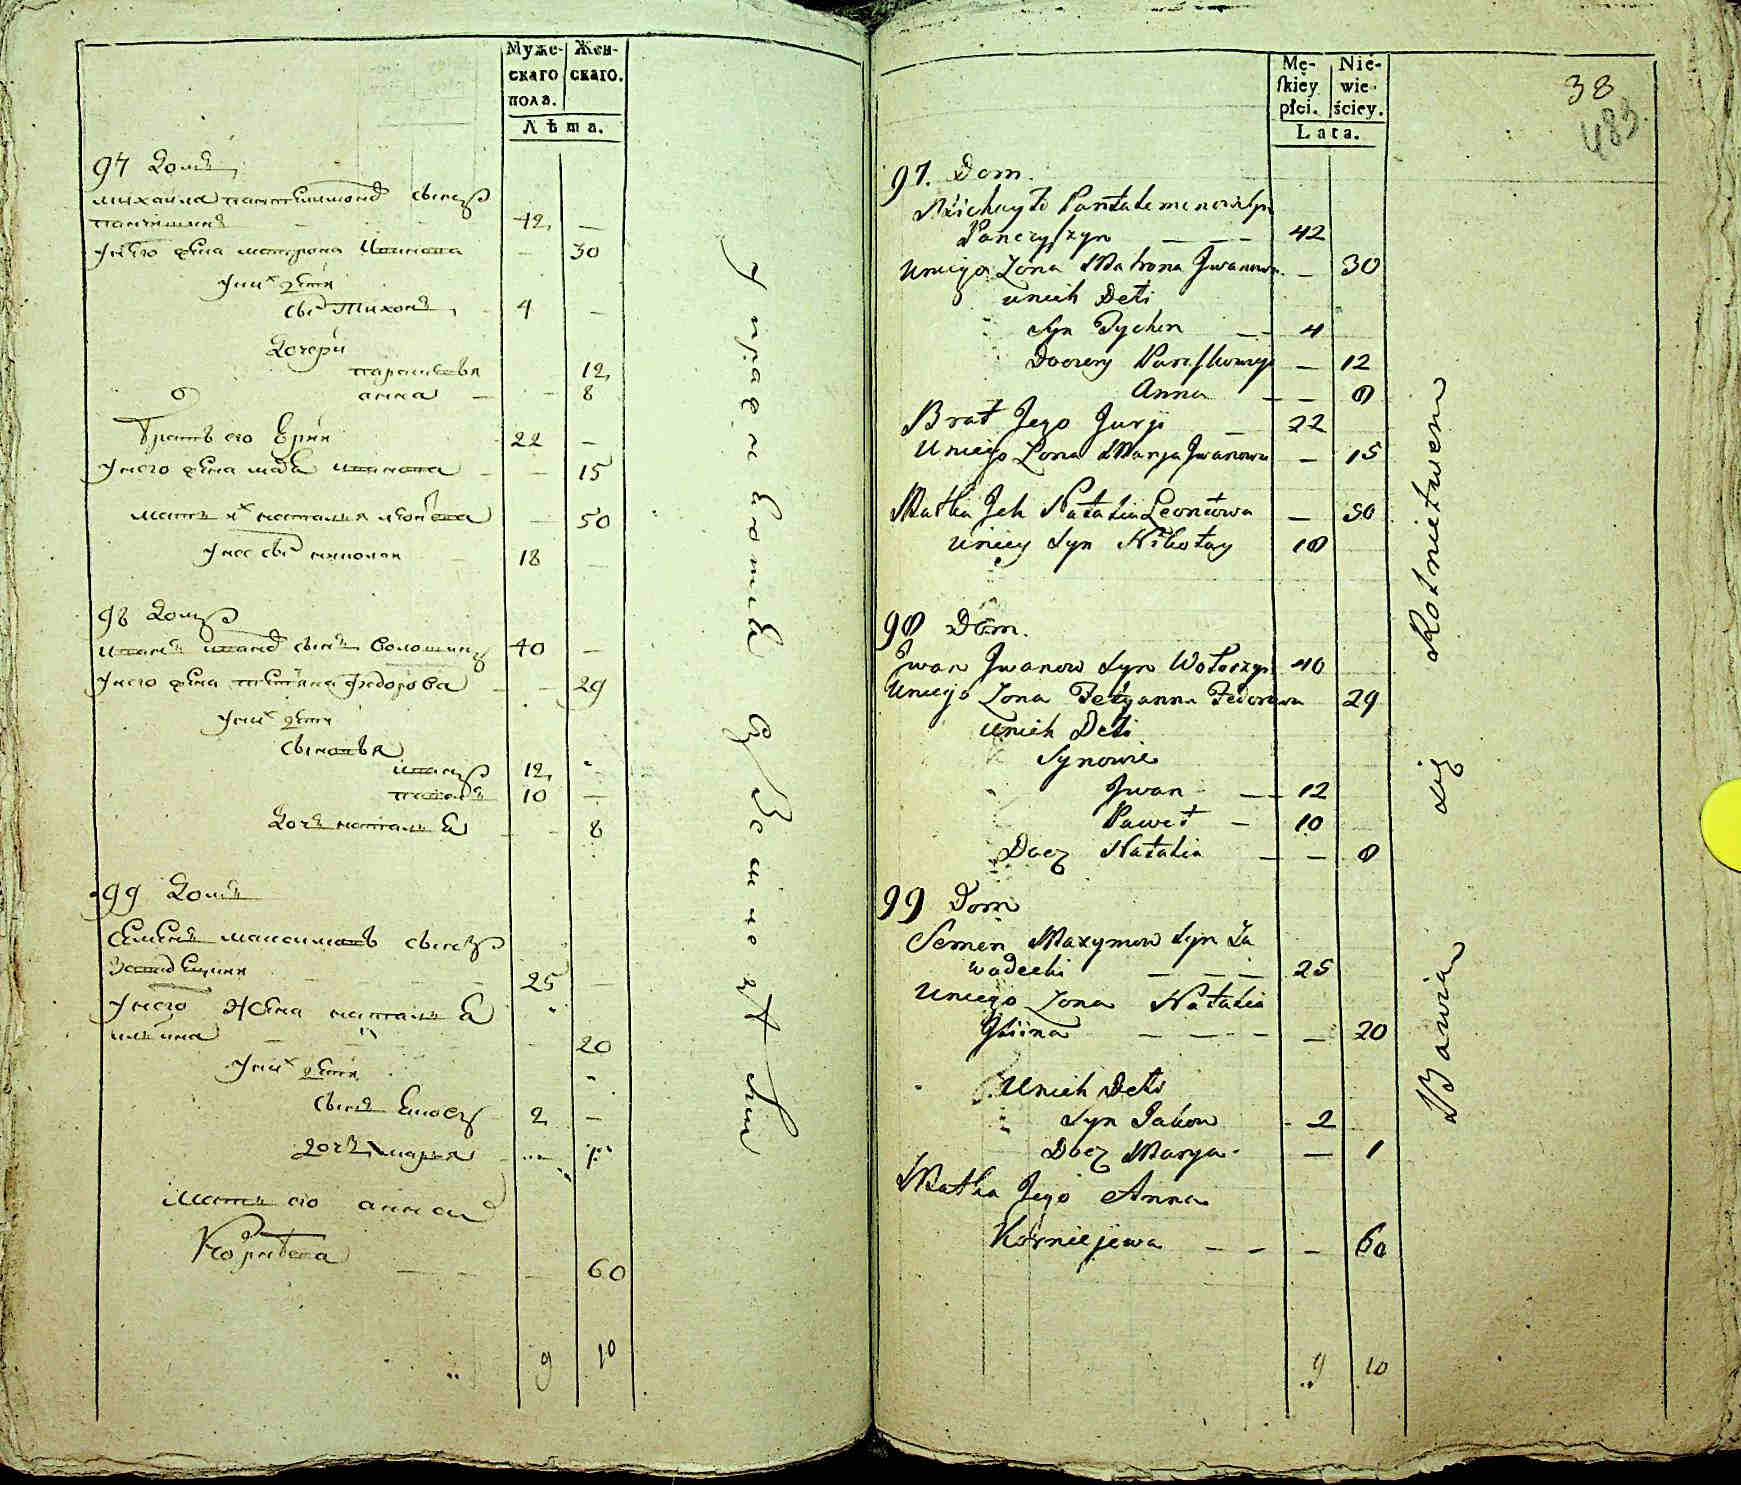 Муже-
скаго
пола.
Жен-
скаго.
Лѣта.
97 Домъ
Михаила Пантелимоновъ сынъ
42 —
у него жена Матрона Иванова — 30
у них дети
сынъ Тихонъ 4 —
дочери
Парасковья 12
анна — 8
братъ его Ерій 22 —
у него жена Марья Иванова — 15
мать их наталья леонтева — 50
у нее сынъ николаи 18 —
98 Домъ
иванъ ивановъ сынъ Волошинъ 40 —
у него жена татьяна Федорова — 29
у них дети
сыновья
иванъ 12
павелъ 10 —
дочь наталья 8
99 Домъ
Семенъ максимовъ сынъ
25 —
у него жена наталья
ильина 20
у них дети
сынъ Яковъ 2 —
дочь марья 1
мать его анна
Корнѣева
60
9 10
Упражняется въ Земледѣліи
Mę-
skiéy
płci.
Nie-
wie-
ściey.
Lata.
38
483
97. Dom.
Michayło Pantalemonow Syn
Panczyszyn — — — 42
Uniego Zona Matrona Jwanowa — 30
unich Deti
Syn Tychon — 4
Doczery Paraskowya — 12
Anna — — 8
Brat Jego Jurji — 22
Uniego Zona Marya Jwanowa — 15
Matka Jch Natalia Leontowa — 50
Uniey Syn Nikołay 18
98 Dom.
Jwan Jwanow Syn Wołoszyn 40
Uniego Zona Tetyanna Fedorowa 29
Unich Deti
Synowie
Jwan — 12
Paweł — 10
Docz Natalia — — 8
99 Dom
Semen Maxymow Syn Za
wadecki — — — 25
Uniego Zona Natalia
Jliina — — — — 20
Unich Deti
Syn Jakow 2
Docz Marya — 1
Matka Jego Anna
Korniejewa — — — 60
9 10
Bawia się Rolnictwem